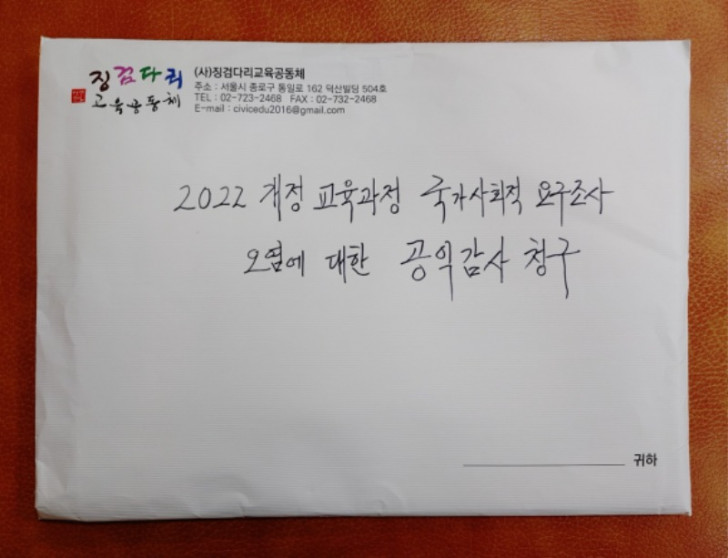 징검다리
교육공동체
(사)징검다리교육공동체
주소 : 서울시 종로구 통일로 162 덕산빌딩 504호
TEL : 02-723-2468 FAX : 02-732-2468
E-mail : civicedu2016@gmail.com
2022 개정 교육과정 국가사회적 요구조사
오염에 대한 공익감사 청구
귀하